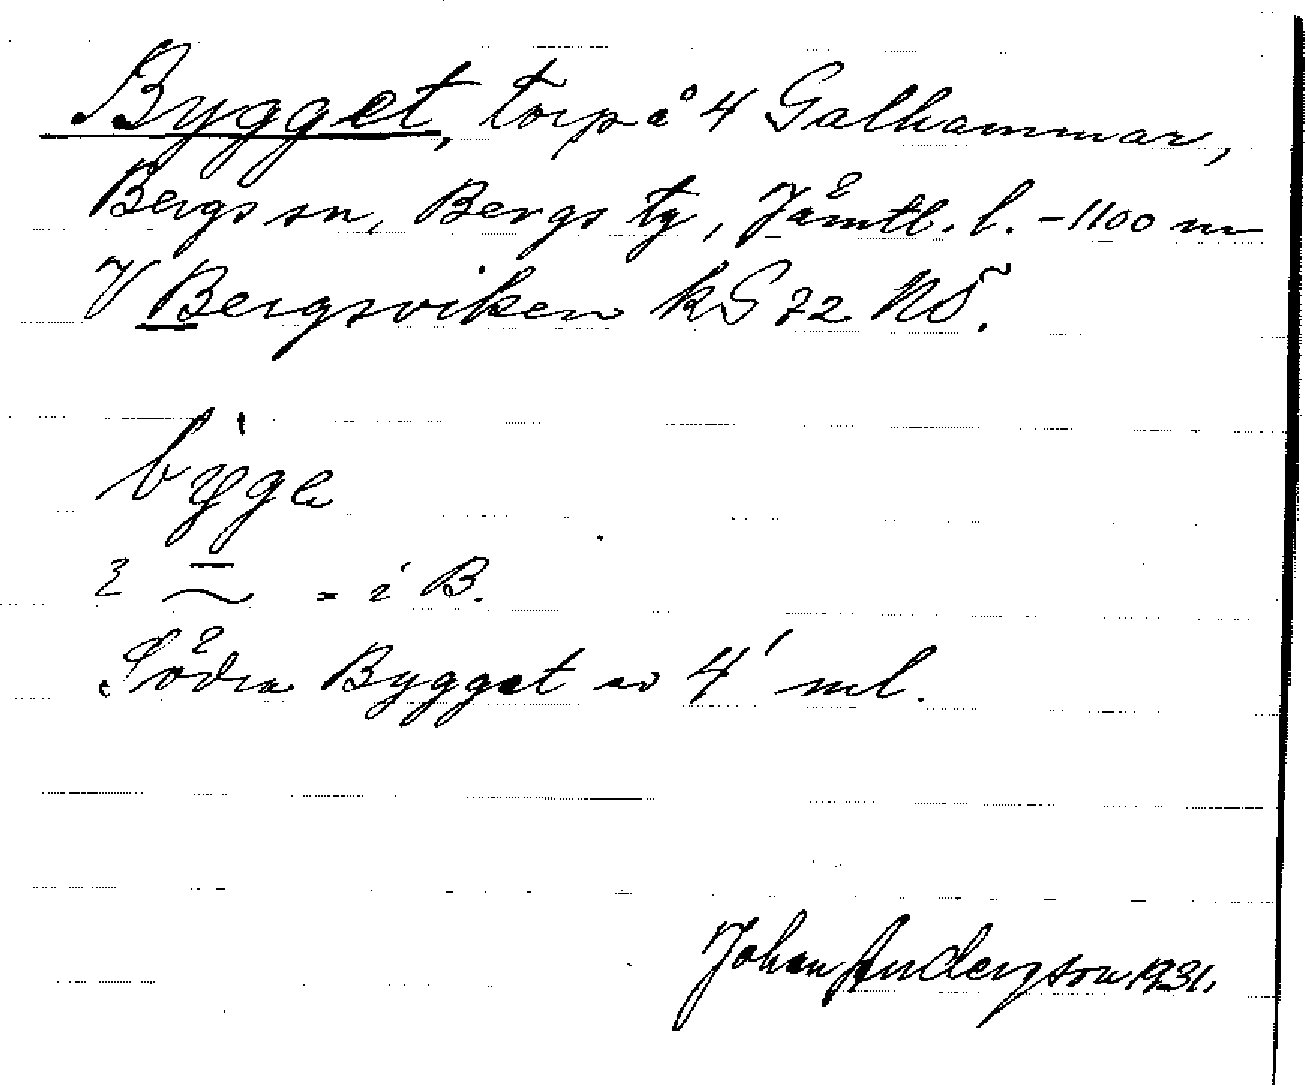 Bygget, torp å 4 Galhammar,
Bergs sn, Bergs tg, Jämtl. l. - 1100 m
V Bergsviken kS 72 NÖ.
by̍ge
i B.
Södra Bygget av 4' ml.
Johan Anderson 1931.